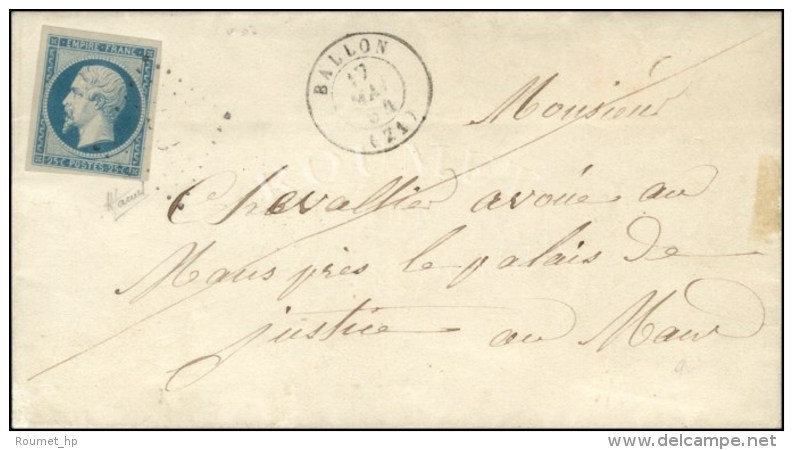 EMPIRE FRANC
25 C POSTES 25 C
BALLON
17
MAI
54
(71)
Monsieur
Chevallier avoüe au
Mans près le palais de
justice au Mans
Roumet_hp
delcampe.net